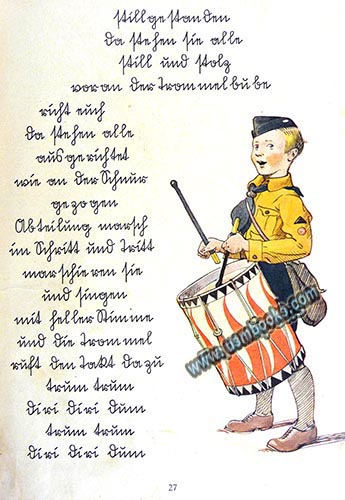 still gestanden
da stehen sie alle
still und stolz
voran der Trommelbube
richt euch
da stehen alle
ausgerichtet
wie an der Schnur
gezogen
Abteilung marsch
im Schritt und Tritt
marschieren sie
und singen
mit heller Stimme
und die Trommel
ruft den Takt dazu
trum trum
diri diri dum
trum trum
diri diri dum
www.usmbooks.com
27